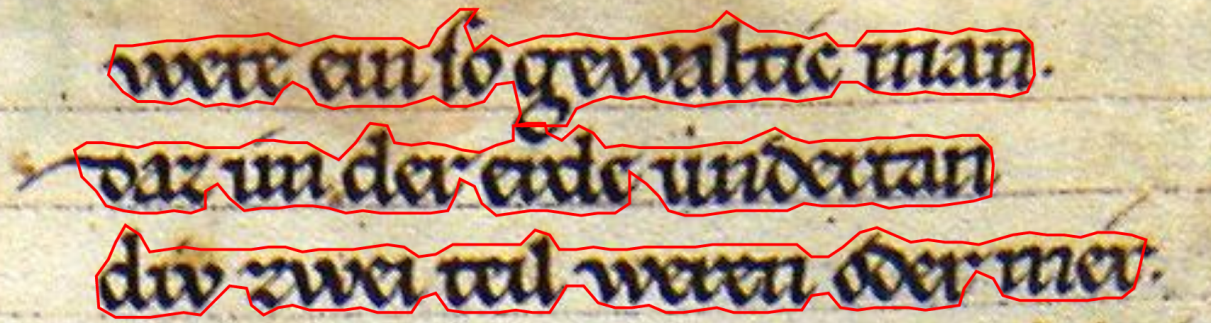 were ein so gewaltic man.
daz im der erde undertan
div zwei teil weren oder mer.